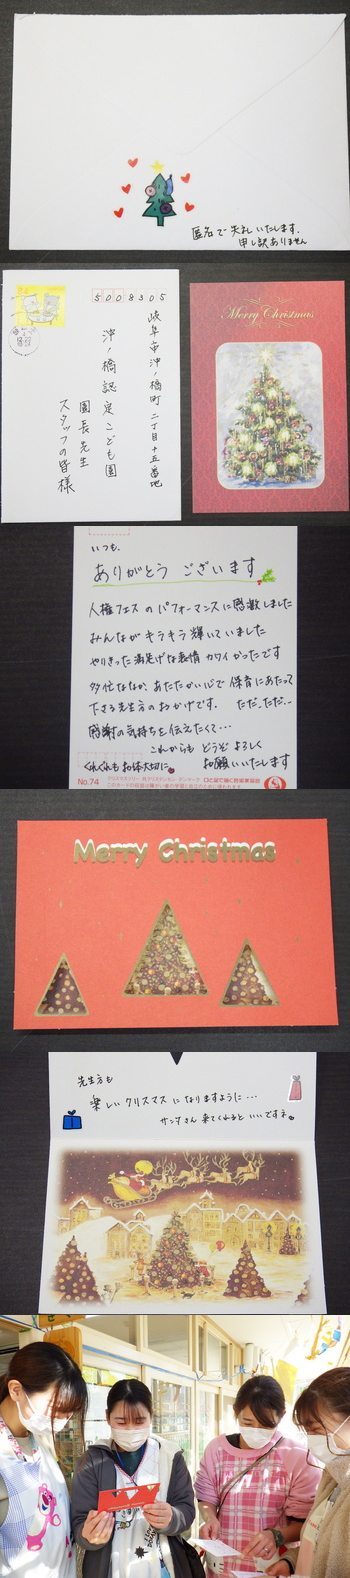 匿名で失礼いたします。
申し訳ありません
5008305
岐阜市沖ノ橋町二丁目十五番地
沖ノ橋認定こども園
園長先生
スタッフの皆様
Merry Christmas
いつも、
ありがとう ございます
人権フェスのパフォーマンスに感激しました
みんながキラキラ輝いていました
やりきった満足げな表情 カワイかったです
多忙ななか、あたたかい心で 保育にあたって
下さる先生方のおかげです。 ただ、ただ、、
感謝の気持ちを伝えたくて…
これからも どうぞ よろしく
お願いいたします
くれぐれもお体大切に
No.74
Merry Christmas
先生方も
楽しいクリスマス になりますように…
サンタさん 来てくれるといいですネ